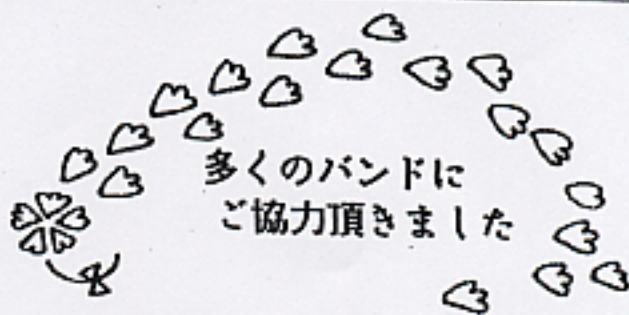 多くのバンドに
ご協力頂きました